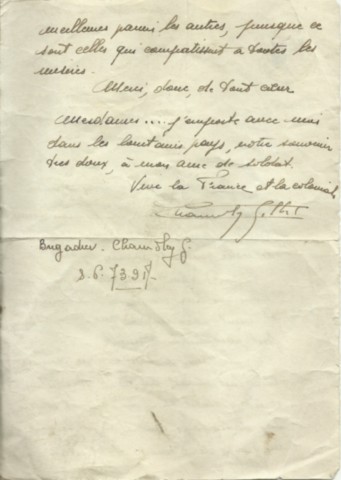 meilleures parmi les autres, puisque ce
sont celles qui compatissent à toutes les
misères.
Merci, donc, de tout cœur
Mesdames.... j'emporte avec moi
dans les lointains pays, votre souvenir
très doux, à mon âme de soldat.
Vive la France et la coloniale
Brigadier